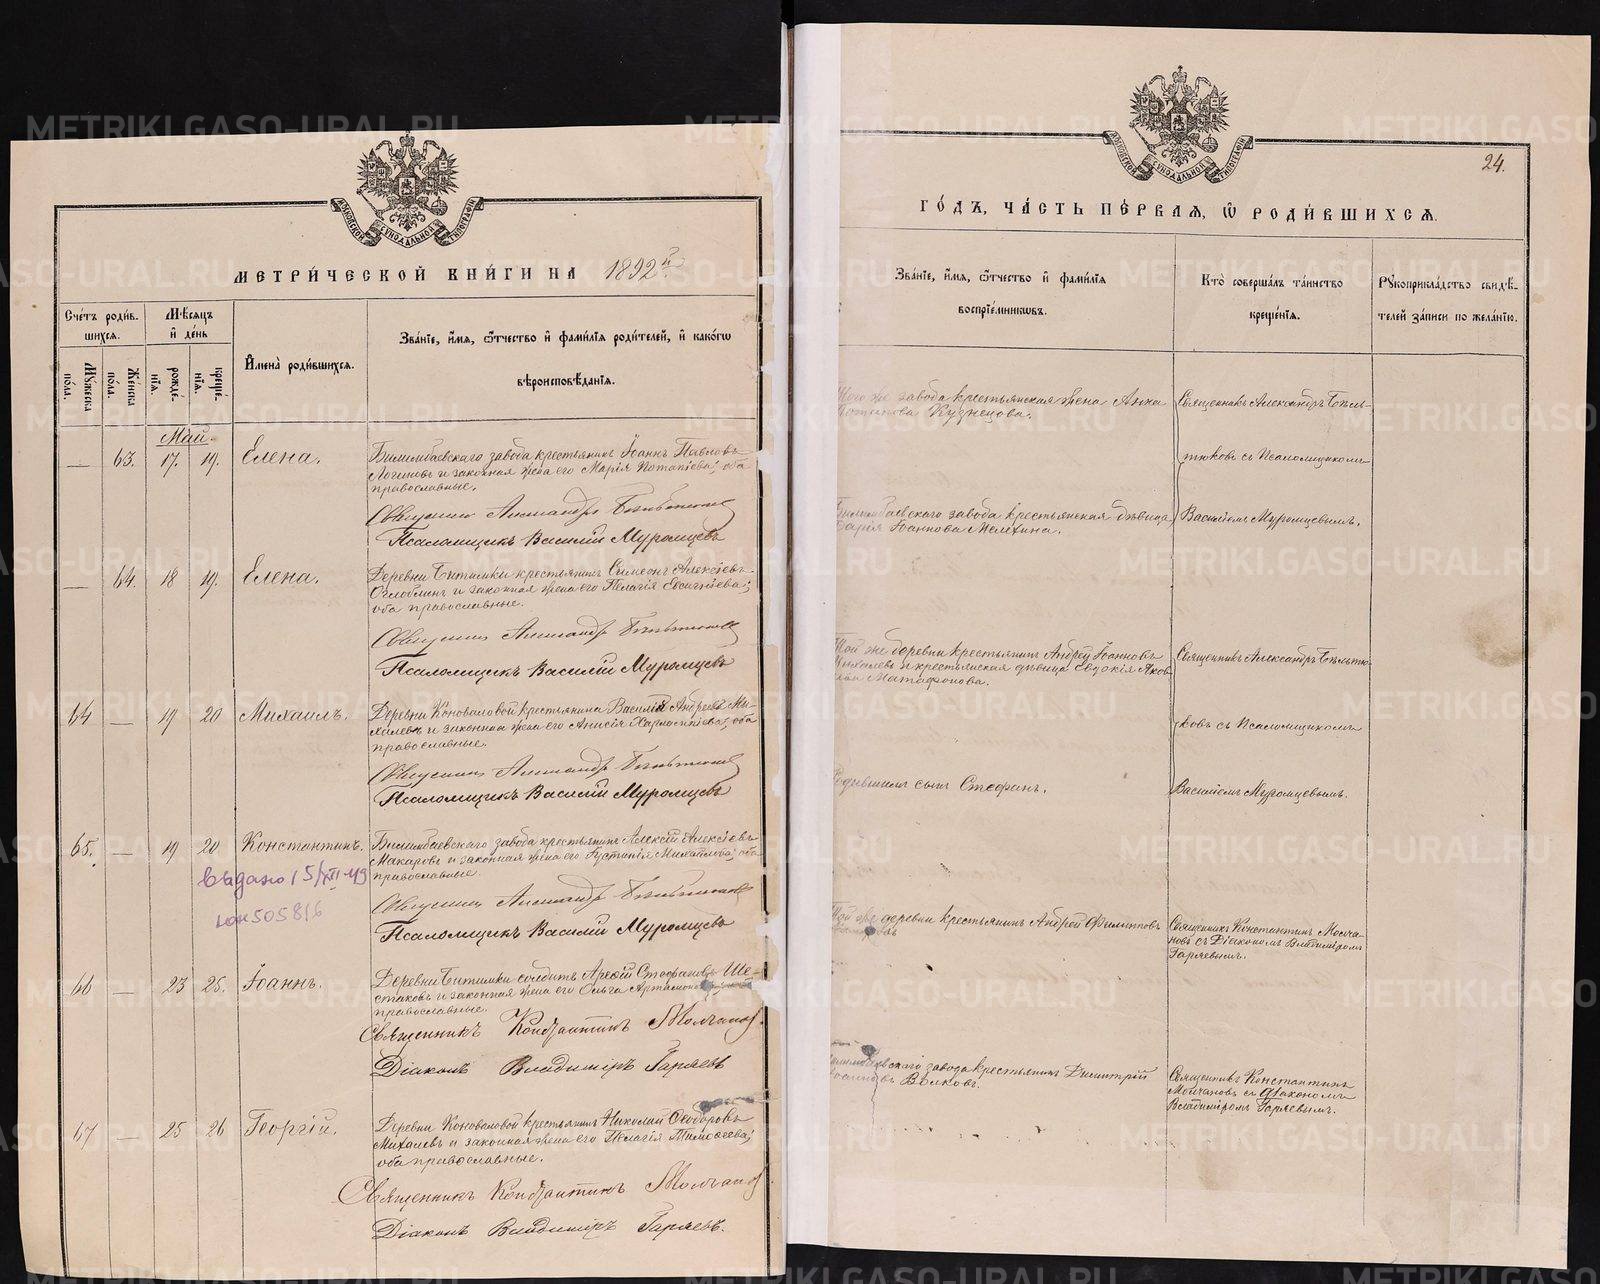 МЕТРИ́ЧЕСКОЙ КНИ́ГИ НА 1892 й
Сче́тъ роди́в-
шихся.
Мѣ́сяцъ
и҆ де́нь
Му́жеска
по́ла.
Же́нска
по́ла.
рожде́-
нїя.
креще́-
нїя.
И҆мена̀ роди́вшихся.
Зва́нїе, и҆́мя, ѻ҆́тчество и҆ фами́лїя роди́телей, и҆ како́гѡ
вѣроисповѣ́данїя.
Май.
— 63. 17. 19. Елена.
Билимбаевскаго завода крестьянинъ Іоаннъ Павловъ
Логиновъ и законная жена его Марія Потапіева; оба
православные.
Священникъ Александръ Бѣльтюковъ
Псаломщикъ Василій Муромцевъ
— 64. 18 19. Елена.
Деревни Битимки крестьянинъ Симеонъ Алексіевъ
Оглоблинъ и законная жена его Пелагія Евсигніева;
оба православные.
Священникъ Александръ Бѣльтюковъ
Псаломщикъ Василій Муромцевъ
64 — 19 20 Михаилъ.
Деревни Коноваловой крестьянинъ Василій Андреевъ Ми-
халевъ и законная жена его Анисія Харлампіева; оба
православные.
Священникъ Александръ Бѣльтюковъ
Псаломщикъ Василій Муромцевъ
65. — 19 20 Константинъ.
Билимбаевскаго завода крестьянинъ Алексій Алексіевъ
Макаровъ и законная жена его Іустинія Михаилова; оба
православные.
выдано 15/XII-49
юн 505816
Священникъ Александръ Бѣльтюковъ
Псаломщикъ Василій Муромцевъ
66 — 23 25. Іоаннъ.
Деревни Битимки солдатъ Арсій Стефановъ Ше-
стаковъ и законная жена его Ольга Артамонова
православные.
Священникъ Константинъ Молчановъ.
Діаконъ Владиміръ Гаряевъ
67 — 25 26 Георгій.
Деревни Коноваловой крестьянинъ Николай Ѳеодоровъ
Михалевъ и законная жена его Пелагія Тимоѳеева;
оба православные.
Священникъ Константинъ Молчановъ
Діаконъ Владиміръ Гаряевъ.
24.
ГО́ДЪ, ЧА́СТЬ ПЕ́РВАЯ, Ѡ҆ РОДИ́ВШИХСЯ.
Зва́нїе, и҆́мя, ѻ҆́тчество и҆ фами́лїя
воспрїе́мникѡвъ.
Кто̀ соверша́лъ та́инство
креще́нїя.
Рꙋкоприкла́дство свидѣ́-
телей за́писи по жела́нїю.
Того же завода крестьянская жена Анна
Потапова Кузнецова.
Священникъ Александръ Бѣль-
тюковъ съ Псаломщикомъ
Билимбаевскаго завода крестьянская дѣвица
Дарія Іоаннова Мелехина.
Василіемъ Муромцевымъ.
Той же деревни крестьянинъ Андрей Іоанновъ
Михалевъ и крестьянская дѣвица Евдокія Яков-
Матафонова.
Священникъ Александръ Бѣльтю-
ковъ съ Псаломщикомъ
Родившихъ сынъ Стефанъ.
Василіемъ Муромцевымъ.
Той же деревни крестьянинъ Андрей Филипповъ
Священникъ Константинъ Молча-
новъ съ Діакономъ Владиміромъ
Гаряевымъ.
Билимбаевскаго завода крестьянинъ Димитрій
Волковъ.
Священникъ Константинъ
Молчановъ съ діакономъ
Владиміромъ Гаряевымъ.
METRIKI.GASO-URAL.RU